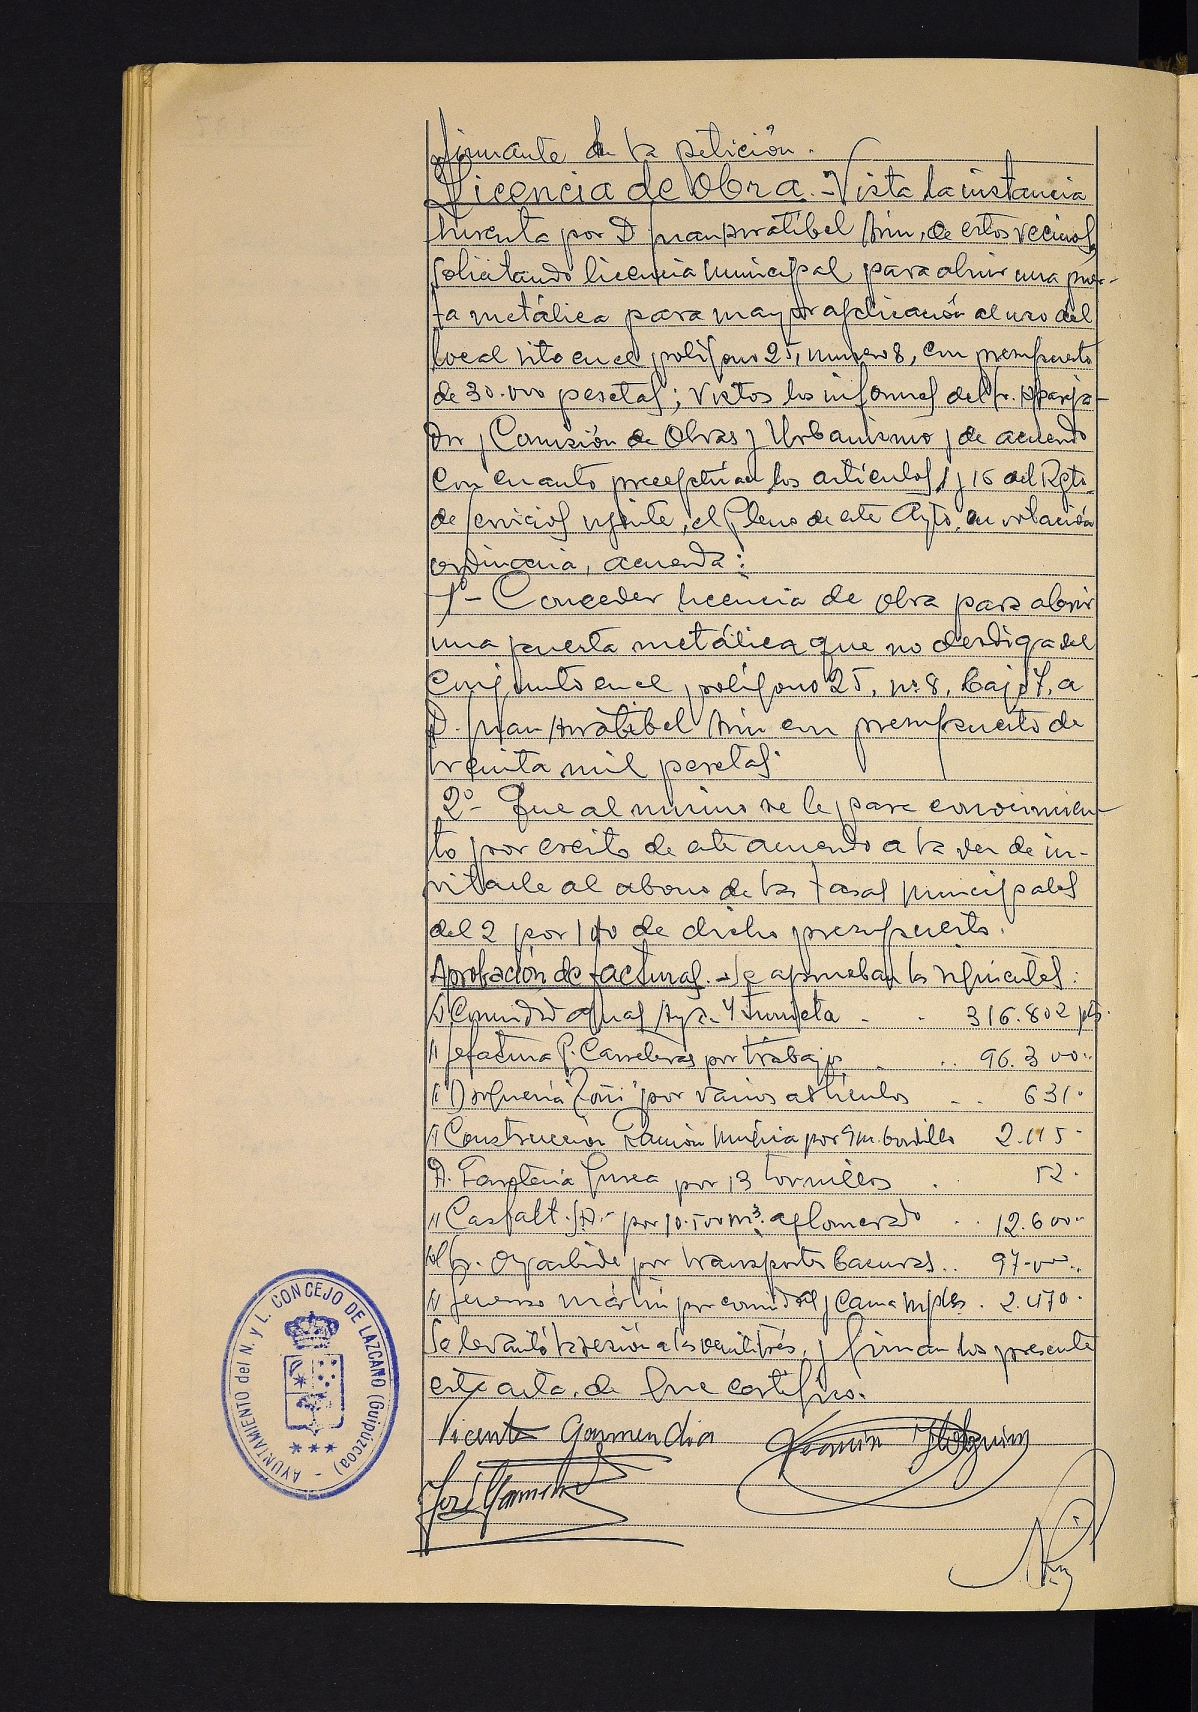 firmante de la petición.
Licencia de obra.- Vista la instancia
suscrita por D Juan Muratibel Arin, de estos vecinos,
solicitando licencia municipal para abrir una puer-
ta metálica para mayor aplicación al uso del
local sito en el polígono 25, numero 8, con presupuesto
de 30.000 pesetas; vistos los informes del Sr. Apareja-
dor y Comisión de Obras y Urbanismo y de acuerdo
con cuanto preceptúan los artículos 1 y 16 del Rgto.
de servicios vigente, el Pleno de este Ayto. en votación
ordinaria, acuerda:
1º- Conceder licencia de obra para abrir
una puerta metálica que no desdiga del
conjunto en el polígono 25, nº 8, bajo 7, a
D. Juan Muratibel Arin con presupuesto de
treinta mil pesetas.
2º- Que al mismo se le pase conocimien-
to por escrito de este acuerdo a la vez de in-
vitarle al abono de las tasas municipales
del 2 por 100 de dicho presupuesto.
Aprobación de facturas.- Se aprueban las siguientes:
A Comunidad aguas 316.802 pts.
" Jefatura P. Carreteras por trabajos .. 96.300.-
" Droguería "Zoñi" por varios artículos .. 631.-
" Construccion Ramón Múgica por 9 m. bordillo 2.115.-
A. Ferretería por 13 tornillos . 52.-
" Casfalt. S.A.- por 10.500 m³. aglomerado .. 12.600.-
al Sr. Oyarbide por transportes basuras .. 97.000.-
" Jenaro martín por comidas y cama . 2.470.-
Se levantó la sesión a las veintitrés, y firman los presente
este acta, de que certifico.
Vicente Garmendia
José Garmendia
AYUNTAMIENTO del N. y L. CONCEJO DE LAZCANO (Guipúzcoa)